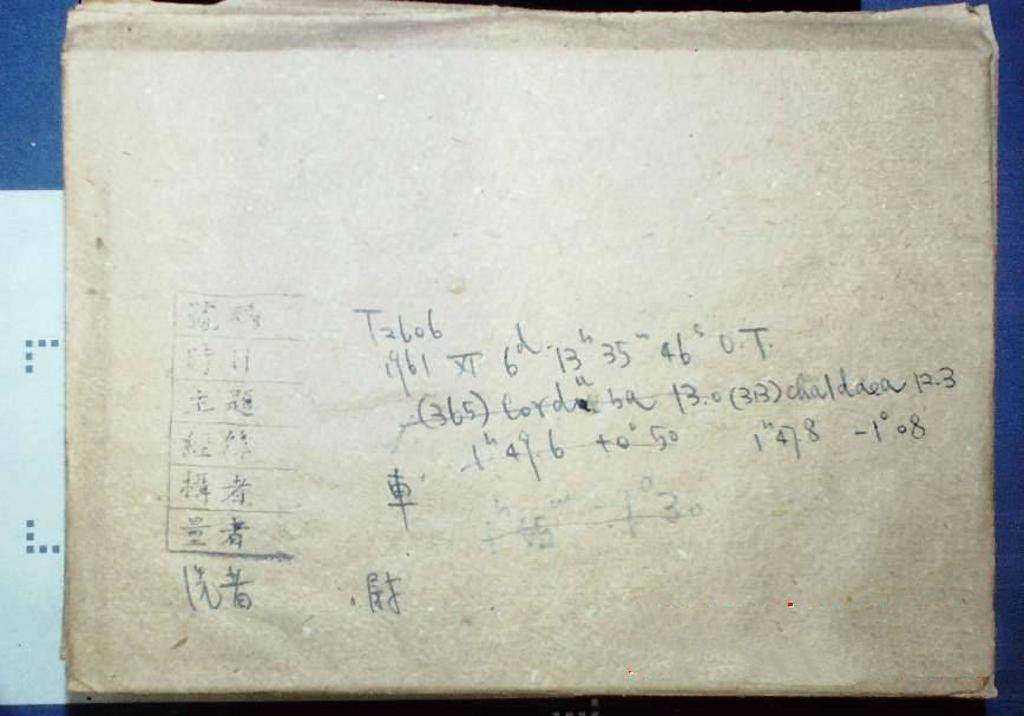 號碼 T2606
時日 1961 XI 6d 13h 35m 46s U.T.
主題 (365) Corduba 13.0 (313) chaldaea 12.3
經緯 1h 49.6 +0° 50 1h 47.8 -1° 08
攝者 車
1h 45m -1° 30
量者
洗者 尉